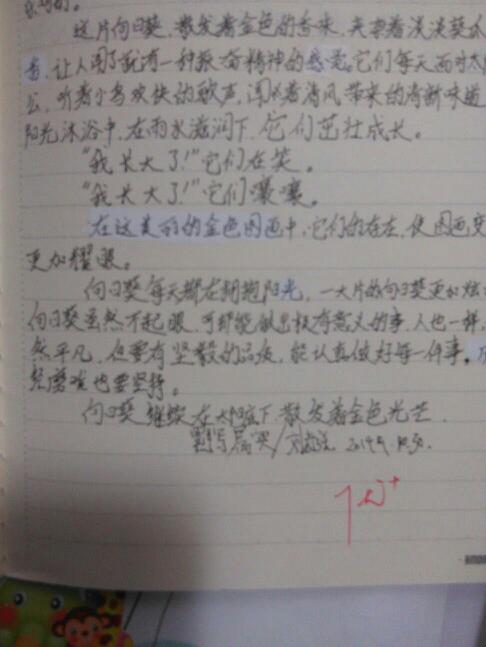 这片向日葵，散发着金色的香味，夹杂着淡淡葵瓜
香，让人闻了就有一种振奋精神的感觉。它们每天面对太
公，听着小鸟欢快的歌声，闻着清风带来的清新味道
阳光沐浴中，在雨水滋润下，它们茁壮成长。
“我长大了！”它们在笑。
“我长大了！”它们嚷嚷。
在这美丽的金色图画中，它们的存在，使图画变
更加耀眼。
向日葵每天都在拥抱阳光，一大片的向日葵更加炫
向日葵虽然不起眼，可却能做出极有意义的事，人也一样，
然平凡，但要有坚毅的品质，能认真做好每一件事。
经磨难也要坚持。
向日葵继续在太阳底下，散发着金色光芒。